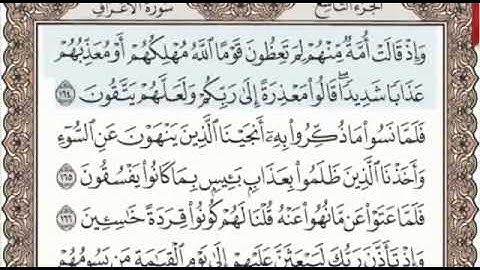 الجزء التاسع سورة الأعراف
وَإِذْ قَالَتْ أُمَّةٌ مِّنْهُمْ لِمَ تَعِظُونَ قَوْمًا ٱللَّهُ مُهْلِكُهُمْ أَوْ مُعَذِّبُهُمْ
عَذَابًا شَدِيدًا ۖ قَالُوا۟ مَعْذِرَةً إِلَىٰ رَبِّكُمْ وَلَعَلَّهُمْ يَتَّقُونَ ١٦٤
فَلَمَّا نَسُوا۟ مَا ذُكِّرُوا۟ بِهِۦٓ أَنجَيْنَا ٱلَّذِينَ يَنْهَوْنَ عَنِ ٱلسُّوٓءِ
وَأَخَذْنَا ٱلَّذِينَ ظَلَمُوا۟ بِعَذَابٍۭ بَـِٔيسٍۭ بِمَا كَانُوا۟ يَفْسُقُونَ ١٦٥
فَلَمَّا عَتَوْا۟ عَن مَّا نُهُوا۟ عَنْهُ قُلْنَا لَهُمْ كُونُوا۟ قِرَدَةً خَـٰسِـِٔينَ ١٦٦
وَإِذْ تَأَذَّنَ رَبُّكَ لَيَبْعَثَنَّ عَلَيْهِمْ إِلَىٰ يَوْمِ ٱلْقِيَـٰمَةِ مَن يَسُومُهُمْ